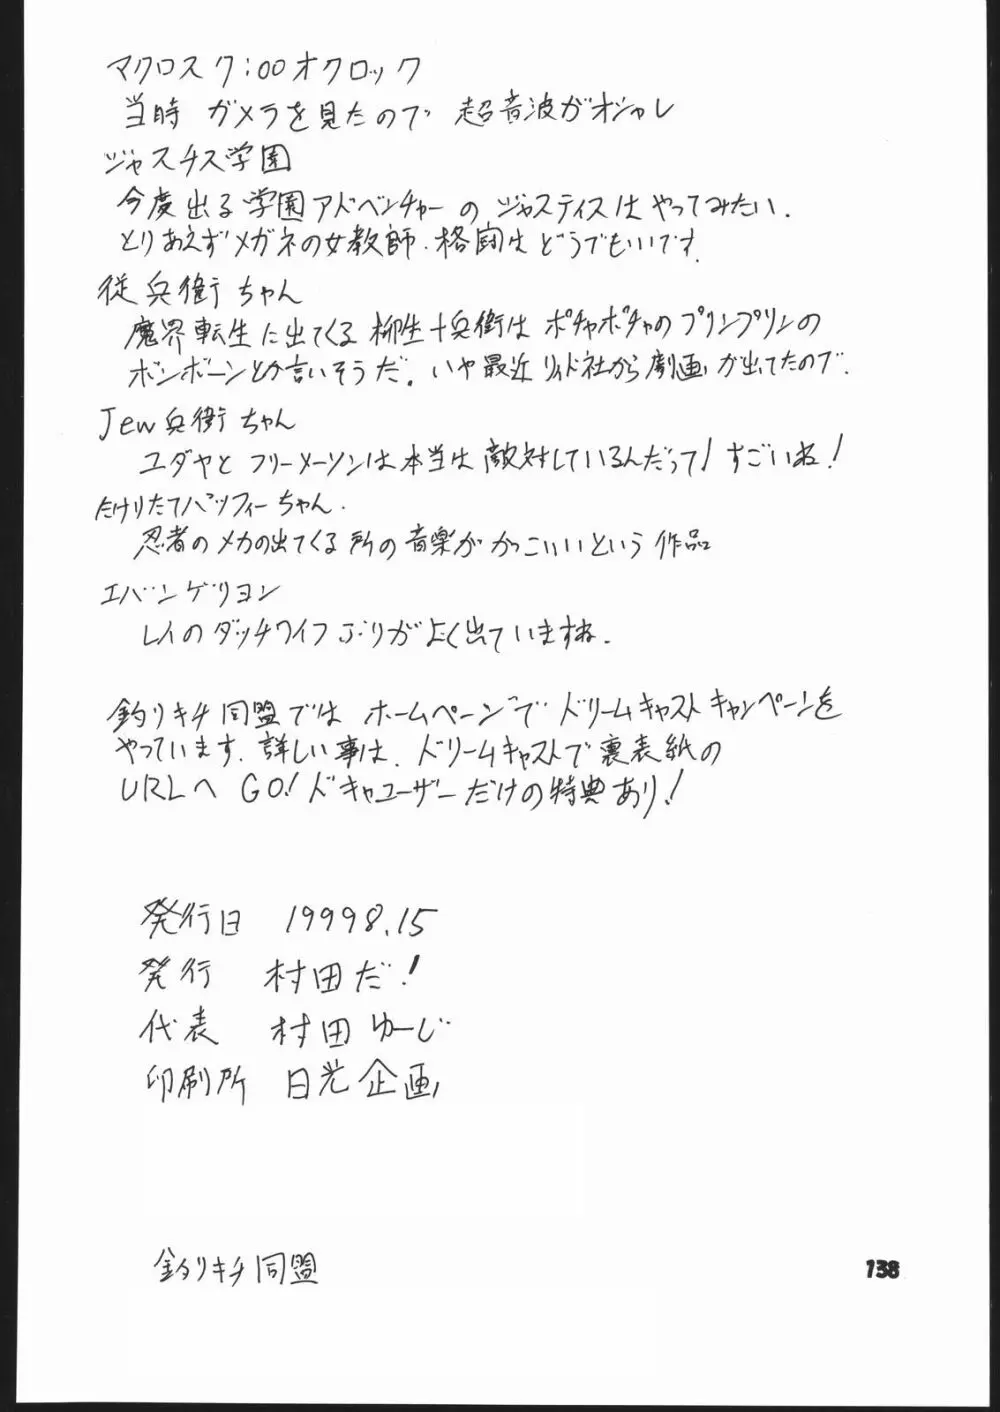 マクロス7:00オクロック
当時 ガメラを見たので 超音波がオシャレ
ジャスチス学園
今度出る学園アドベンチャーの ジャスティスは やってみたい.
とりあえずメガネの女教師.格闘は どうでもいいです.
従兵衛ちゃん
魔界転生に出てくる 柳生十兵衛は ポチャポチャのプリンプリンの
ボンボーンとか言いそうだ。いや最近 リイド社から劇画が出てたので.
Jew兵衛ちゃん
ユダヤと フリーメーソンは本当は敵対しているんだって! すごいね!
たけりたてバッフィーちゃん.
忍者のメカの出てくる 所の音楽が かっこいいという 作品
エバンゲリヨン
レイのダッチワイフぶりがよく出ていますね.
釣りキチ同盟では ホームページで ドリームキャストキャンペーンを
やっています.詳しい事は.ドリームキャストで裏表紙の
URLへ GO!ドキャユーザーだけの特典あり!
発行日 19998.15
発行 村田だ!
代表 村田 ゆーじ
印刷所 日光企画
釣りキチ同盟
138